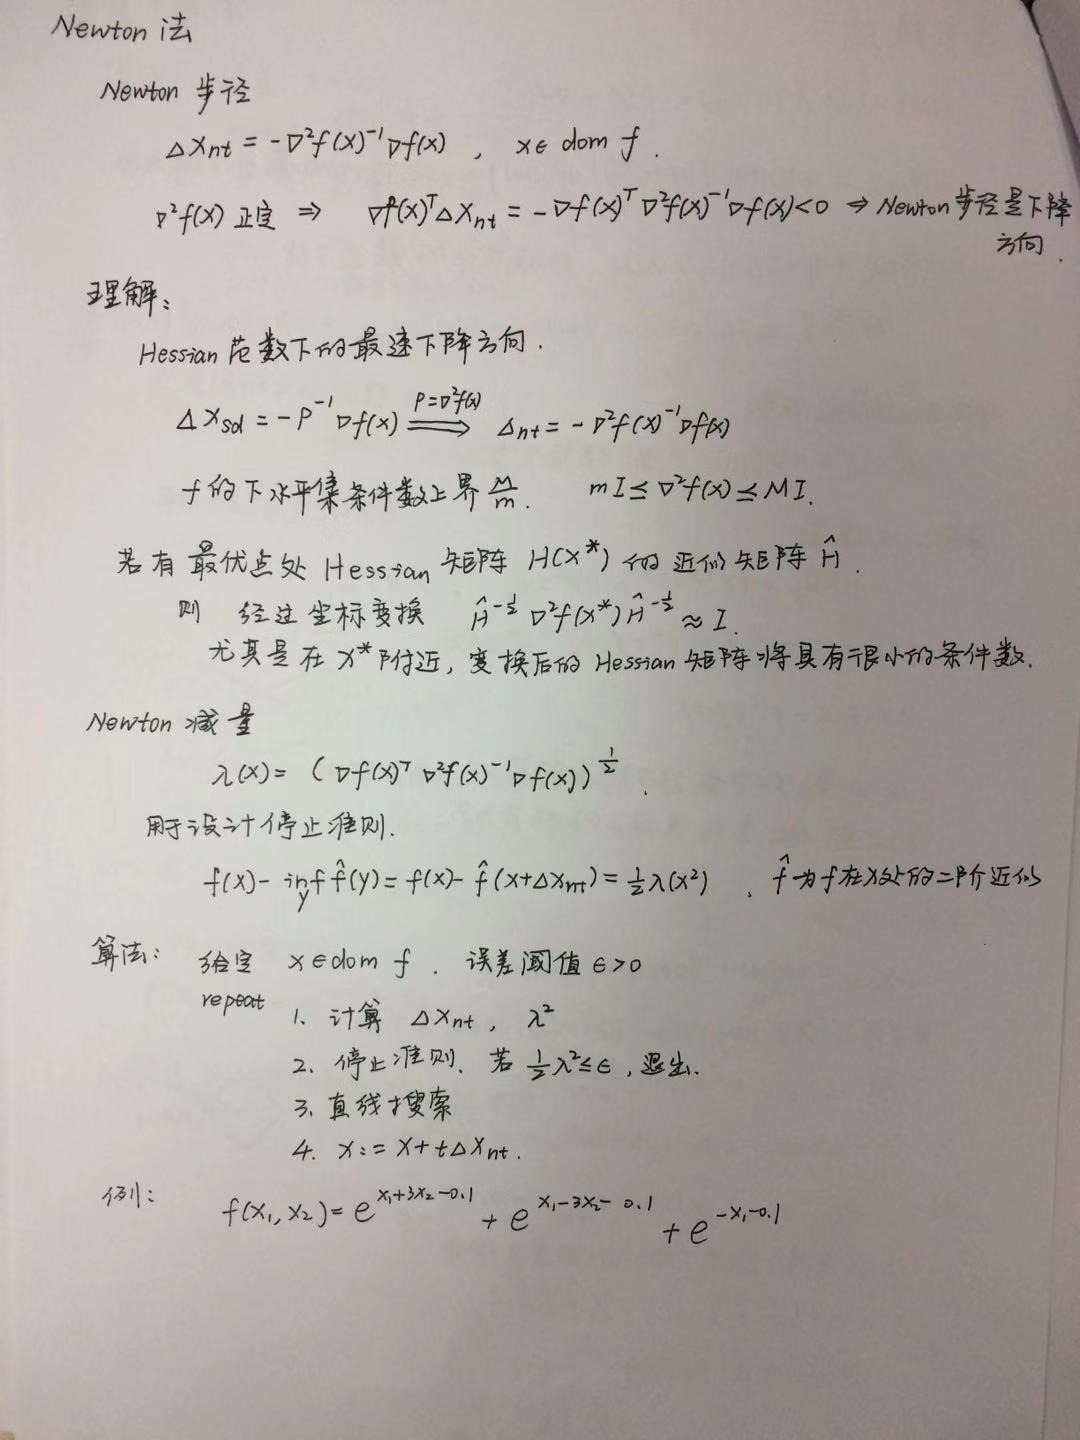 Newton 法
Newton 步径
Δx_nt = -∇²f(x)⁻¹∇f(x) , x∈ dom f .
∇²f(x) 正定 ⇒ ∇f(x)ᵀΔx_nt = -∇f(x)ᵀ∇²f(x)⁻¹∇f(x)<0 ⇒ Newton步径是下降
方向 .
理解:
Hessian 范数下的最速下降方向 .
Δx_sd = -P⁻¹∇f(x) ⟹(P=∇²f(x)) Δ_nt = -∇²f(x)⁻¹∇f(x)
f 的下水平集条件数上界 M/m . mI ≤ ∇²f(x) ≤ MI .
若有 最优点处 Hessian 矩阵 H(x*) 的 近似矩阵 Ĥ .
则 经过 坐标变换 Ĥ^{-1/2} ∇²f(x*) Ĥ^{-1/2} ≈ I .
尤其是在 x* 附近, 变换后的 Hessian 矩阵将具有很小的条件数 .
Newton 减量
λ(x) = ( ∇f(x)ᵀ ∇²f(x)⁻¹∇f(x) )^{1/2} .
用于设计停止准则 .
f(x) - inf_y f̂(y) = f(x) - f̂(x+Δx_nt) = ½λ(x²) , f̂ 为 f 在x处的二阶近似
算法: 给定 x∈dom f . 误差阈值 ϵ>0
repeat
1. 计算 Δx_nt , λ²
2. 停止准则. 若 ½λ²≤ϵ , 退出.
3. 直线搜索
4. x := x+tΔx_nt .
例: f(x₁, x₂) = e^{x₁+3x₂-0.1} + e^{x₁-3x₂-0.1} + e^{-x₁-0.1}